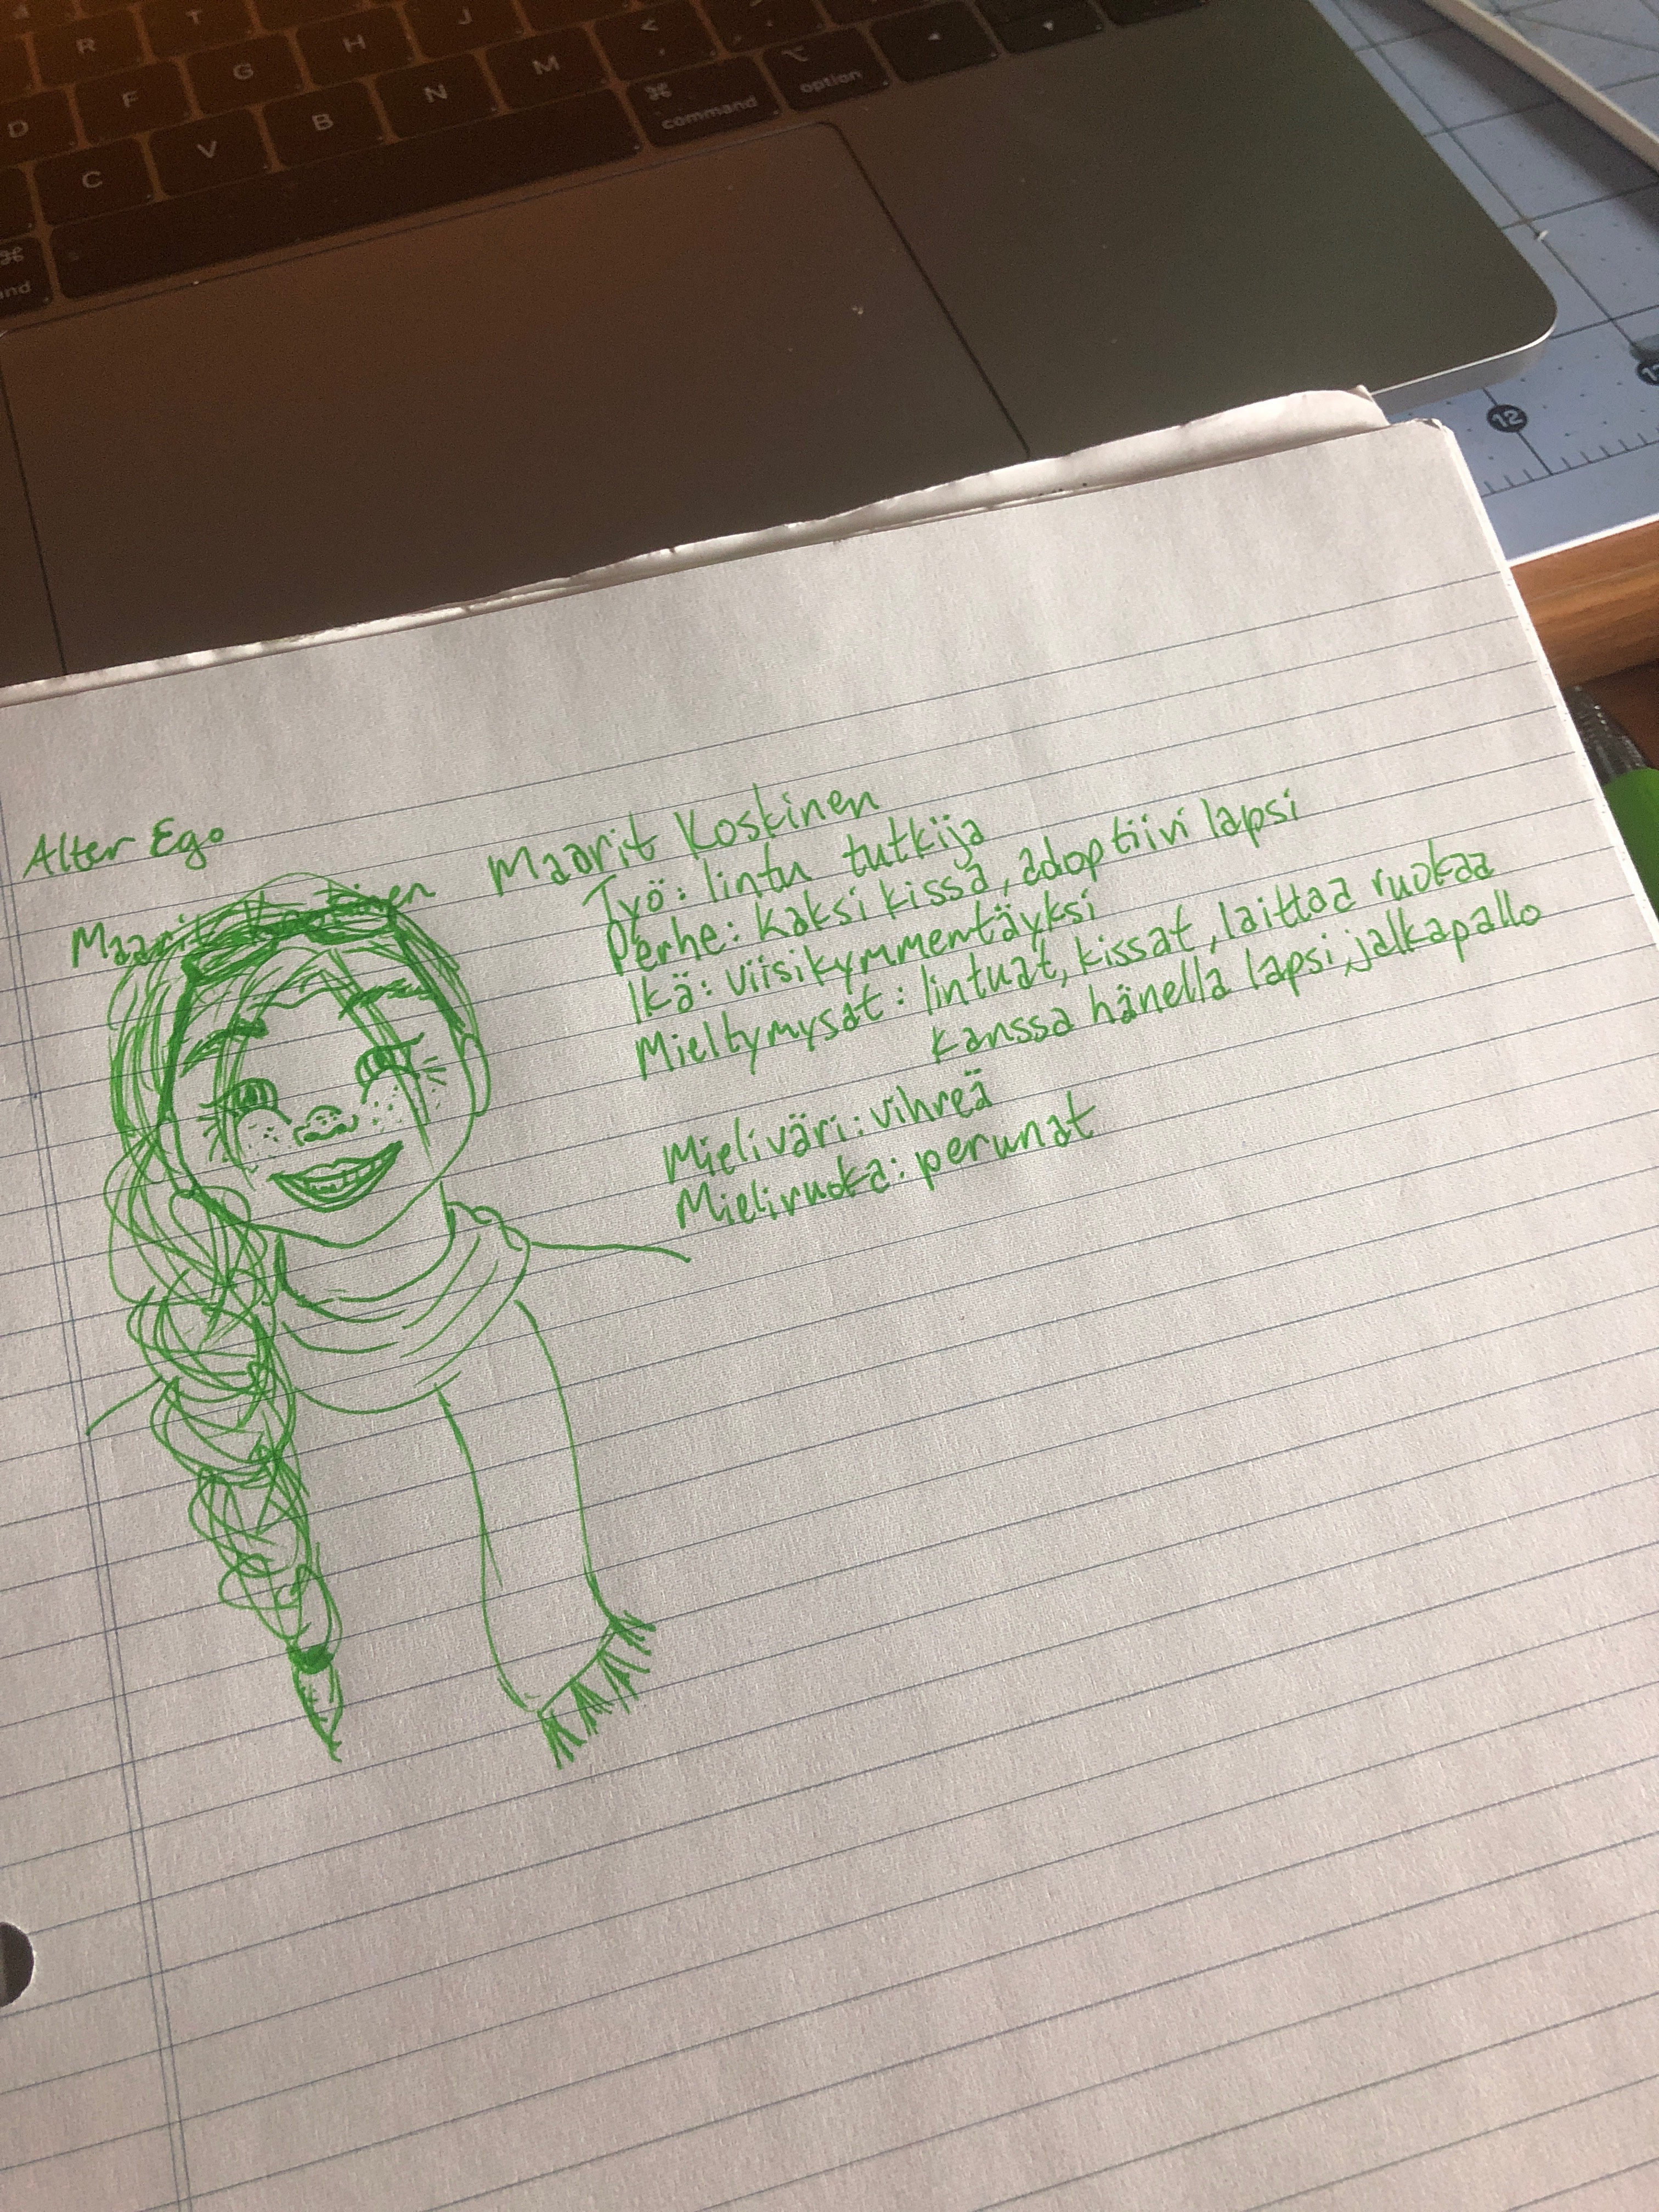 R T H J
D F G H
C V B N M < , command option
⌘
12
Alter Ego
Maarit Koskinen
Maarit Koskinen
Työ: lintu tutkija
Perhe: kaksi kissa, adoptiivi lapsi
Ikä: viisikymmentäyksi
Mieltymysat: lintuat, kissat, laittaa ruokaa
kanssa hänella lapsi, jalkapallo
Mieliväri: vihreä
Mieliruoka: perunat